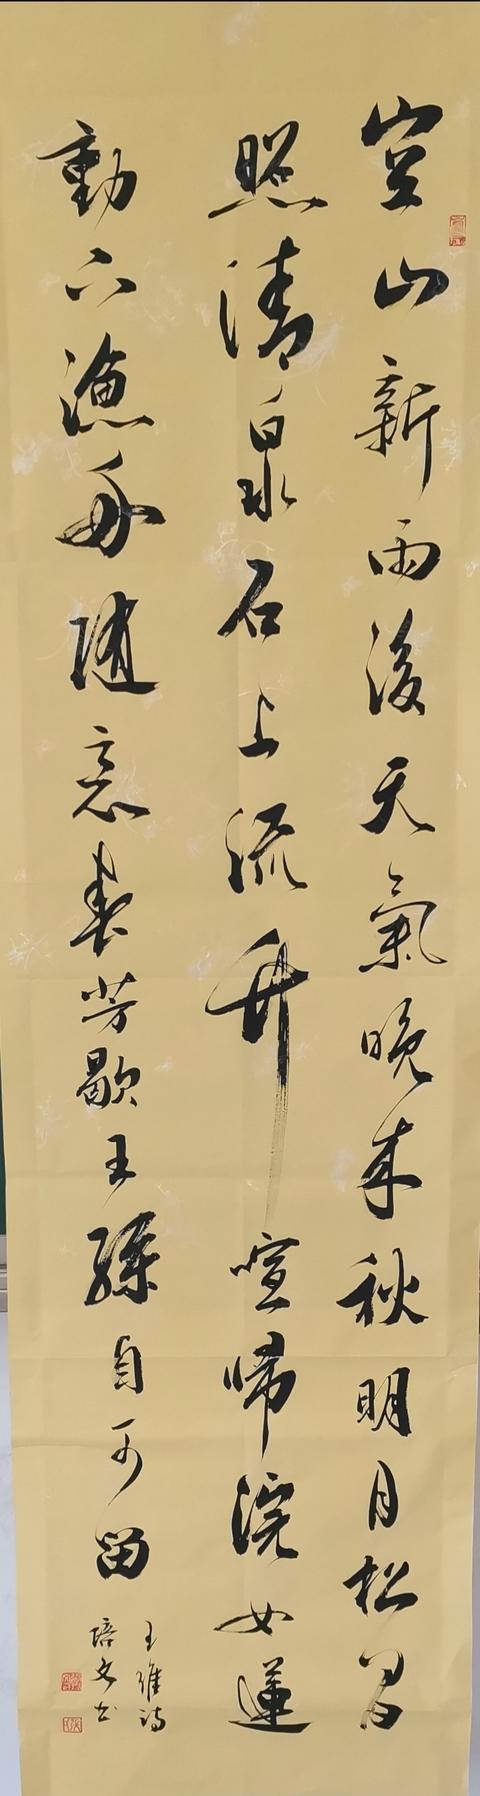 空山新雨後天氣晚来秋明月松間
照清泉石上流竹喧歸浣女蓮
動下漁舟随意春芳歇王孫自可留
王維詩
培文书